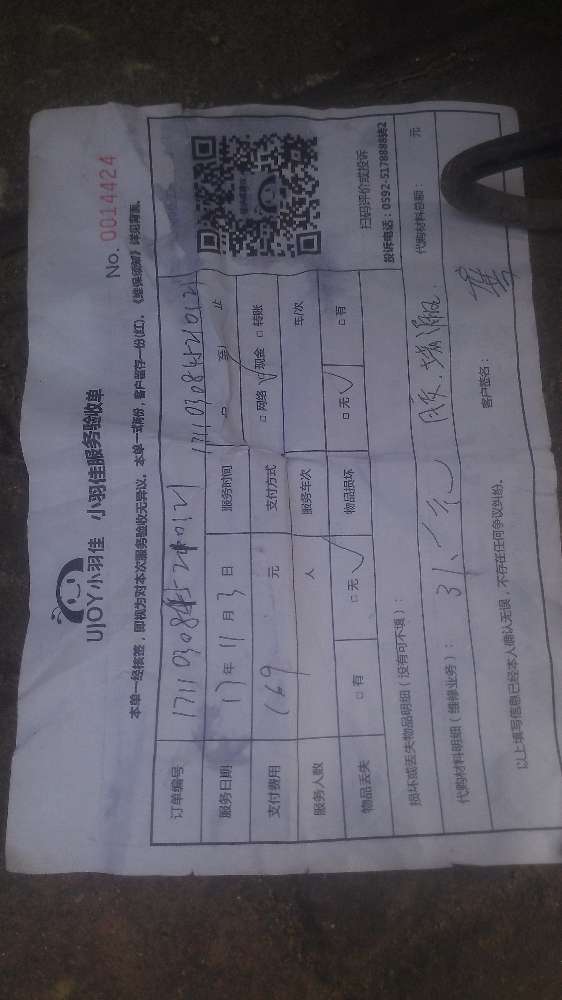 No. 0014424
UJOY小羽佳 小羽佳服务验收单
本单一经核签，即视为对本次服务验收无异议。本单一式两份，客户留存一份(红)，《维保须知》详见背面。
订单编号
服务日期 17年11月3日 服务时间 至 止
支付费用 169 元 支付方式 □网络 ✓现金 □转账
服务人数 人 服务车次 车/次
物品丢失 □有 □无✓ 物品损坏 □无✓ □有
扫码评价或投诉
投诉电话：0592-5178888转2
损坏或丢失物品明细（没有可不填）：
代购材料明细（维修业务）： 代购材料总额： 元
以上填写信息已经本人确认无误，不存在任何争议纠纷。 客户签名：